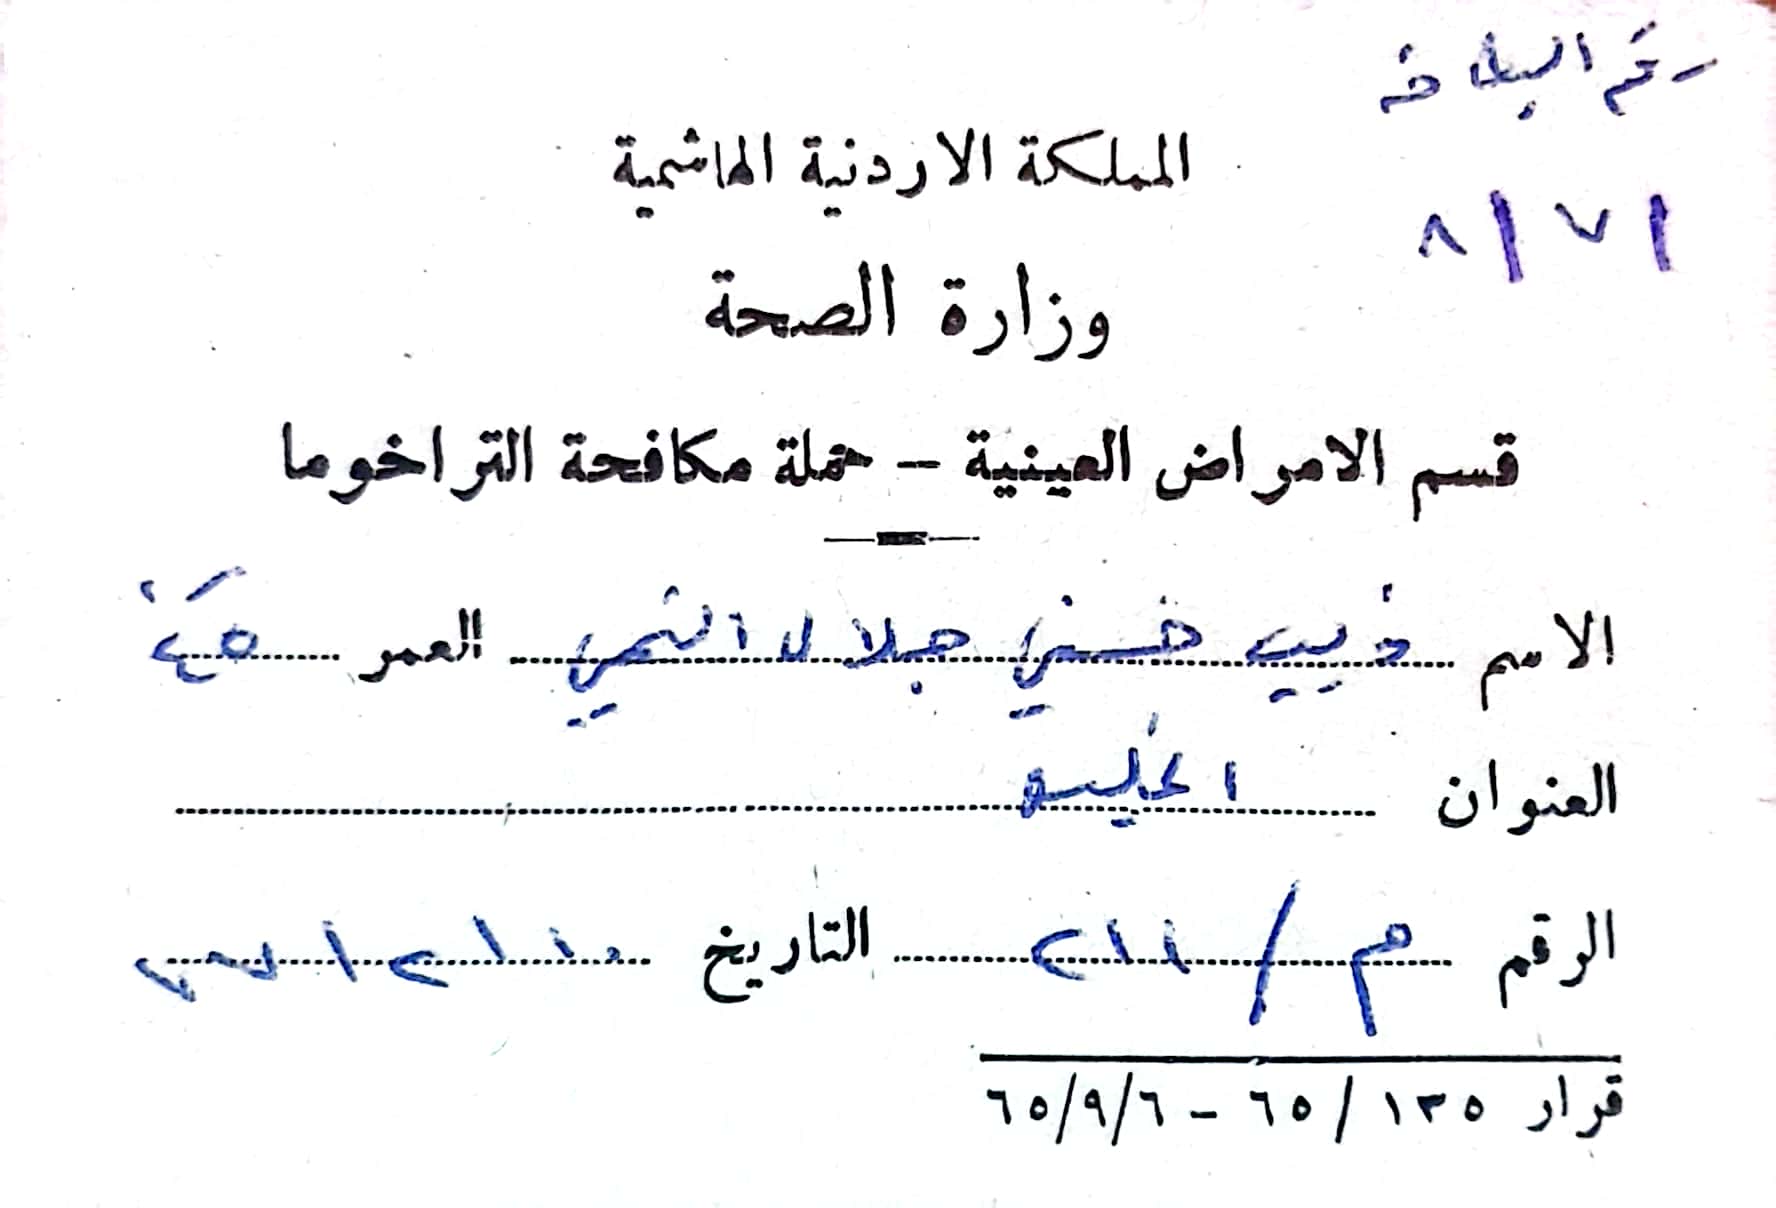 رقم البطاقة
٨/٧/
المملكة الاردنية الهاشمية
وزارة الصحة
قسم الامراض العينية – حملة مكافحة التراخوما
الاسم ذيب حسني جلال التميمي العمر ٤٥
العنوان الخليل
الرقم م/٢١١ التاريخ
قرار ١٣٥ / ٦٥ – ٦٥/٩/٦